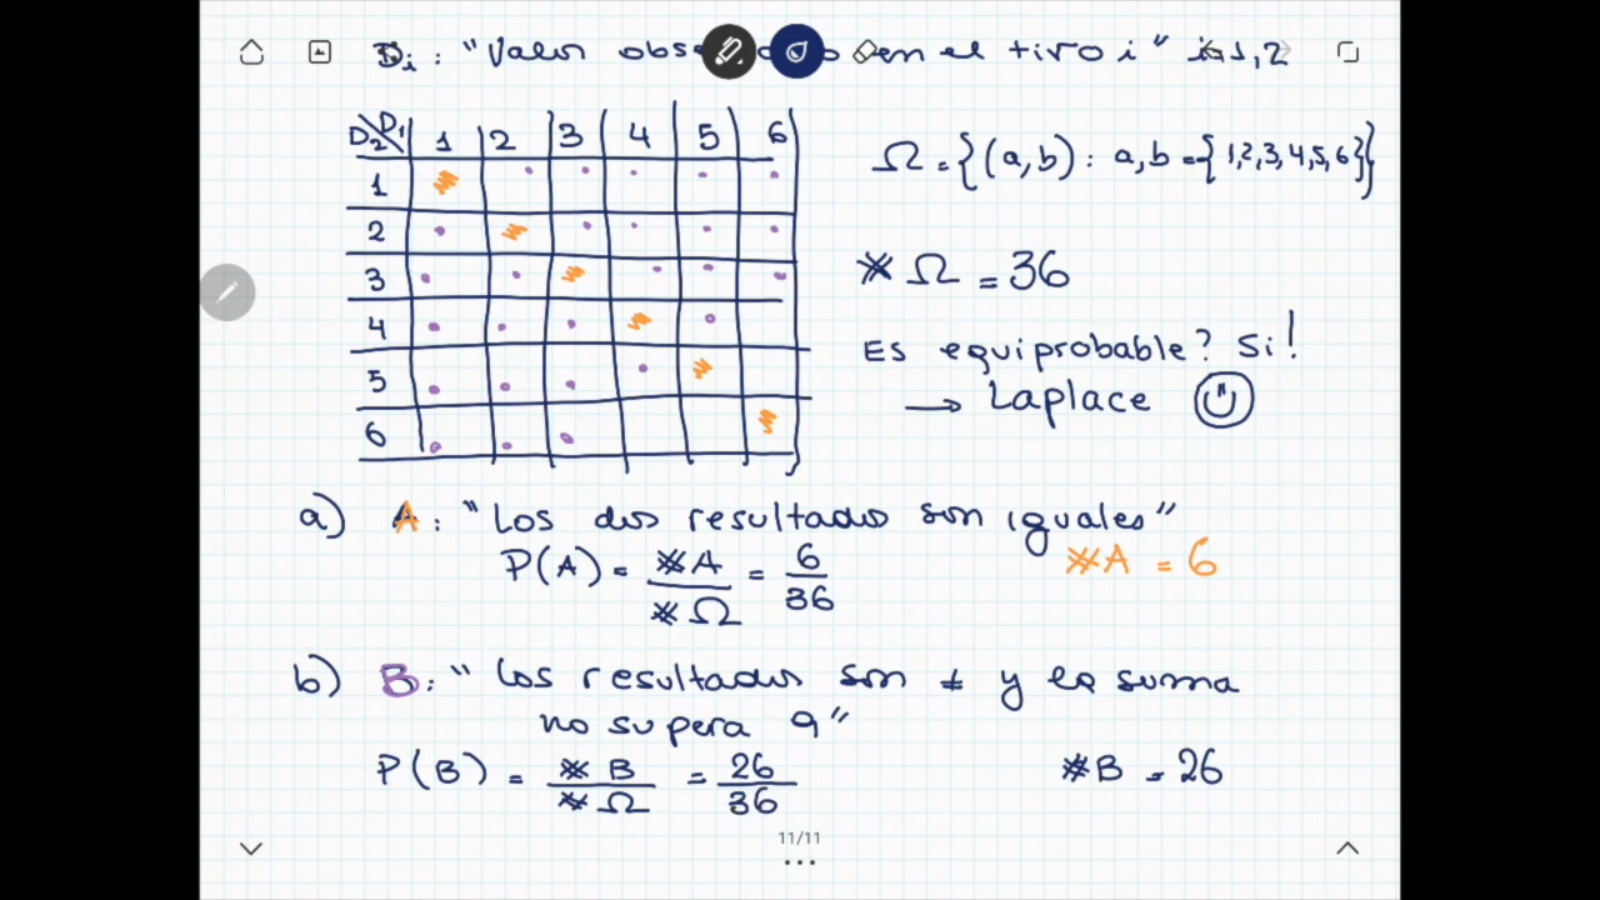 Di: "Valor obs en el tiro i" i=1,2
D2\D1 1 2 3 4 5 6
1
2
3
4
5
6
Ω = {(a,b): a,b = {1,2,3,4,5,6}}
# Ω = 36
Es equiprobable? Si!
→ Laplace
a) A: "Los dos resultados son iguales"
P(A) = #A / #Ω = 6/36
#A = 6
b) B: "Los resultados son ≠ y la suma
no supera 9"
P(B) = #B / #Ω = 26/36
#B = 26
11/11